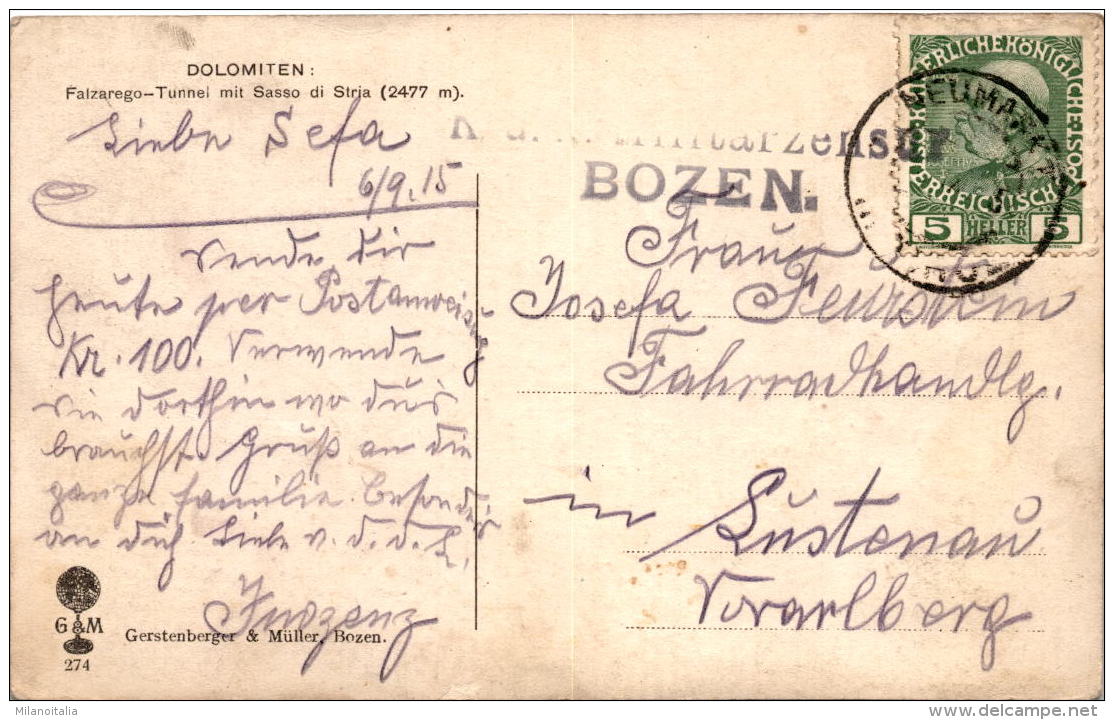 DOLOMITEN:
Falzarego-Tunnel mit Sasso di Stria (2477 m).
Liebe Sefa
6/9.15
Sende dir
heute per Postanweisung
Kr. 100. Verwende
sie dorthin wo du's
brauchst. Gruß an die
ganze Familie besonders
an dich Liebe v. d. d. L.
Inozenz
G&M
274
Gerstenberger & Müller, Bozen.
K. u. k. Militärzensur
BOZEN.
KAISERLICHE KÖNIGLICHE ÖSTERREICHISCHE
5 HELLER 5
NEUMARKT
Frau
Josefa Feurstein
Fahrradhandlg.
in Lustenau
Vorarlberg
Milanoitalia
delcampe.net